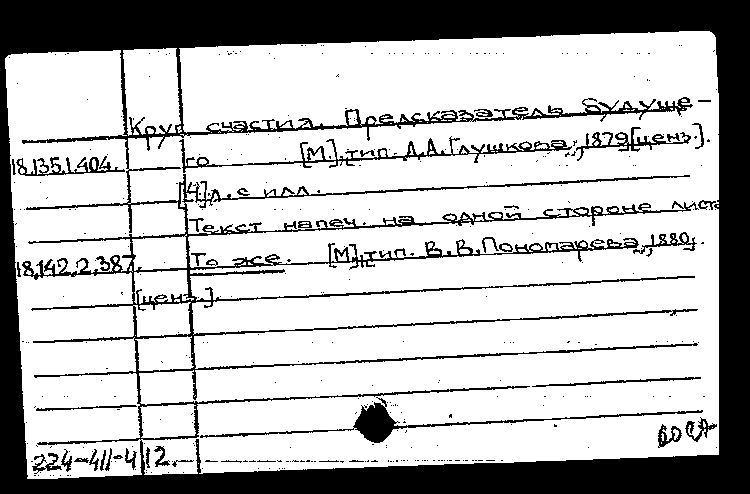 Круг счастия. Предсказатель будуще-
18.135.1.404. го [М.], тип. Д.А. Глушкова, 1879 [ценз.].
[4] л. с илл.
Текст напеч. на одной стороне листа
18.142.2.387. То же. [М], тип. В.В. Пономарева, 1880.
[ценз.].
224-411-4 12.